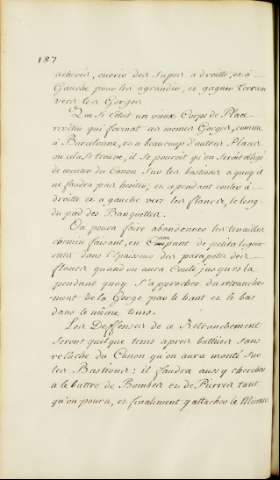 187
achever, ouvrir des sapes a droitte, et a
Gauche pour les agrandir, et gagner terrain
vers les Gorges.
Que si c'était un vieux Corps de Place
revêtu qui format un memes Gorges, comme
à Barcelonne, et a beaucoup d'autres Places
ou cela se trouve, il se pouroit qu'on Seroit obligé
de monter du Canon Sur les bastions a quoy il
ne faudra pas hesiter, et cependant couler à
droitte et a gauche vers les flancs, le long
du pied des Banquettes.
On poura faire abandonner les tenailles
chemin faisant, en Coupant de petits loge-
ments dans l'Epaisseur des parapets des
flancs quand on aura Coulé jusques la
pendant quoy s'aprocher du retranche-
ment de la Gorge par le haut et le bas
dans le même tems.
Les Deffenses de la Retranchement
Seront quelque tems apres battües sans
relâche du Canon qu'on aura monté sur
les Bastions; il faudra aussy chercher
a le battre de Bombes et de Pierres tant
qu'on poura, et finalement y attacher le Mineur